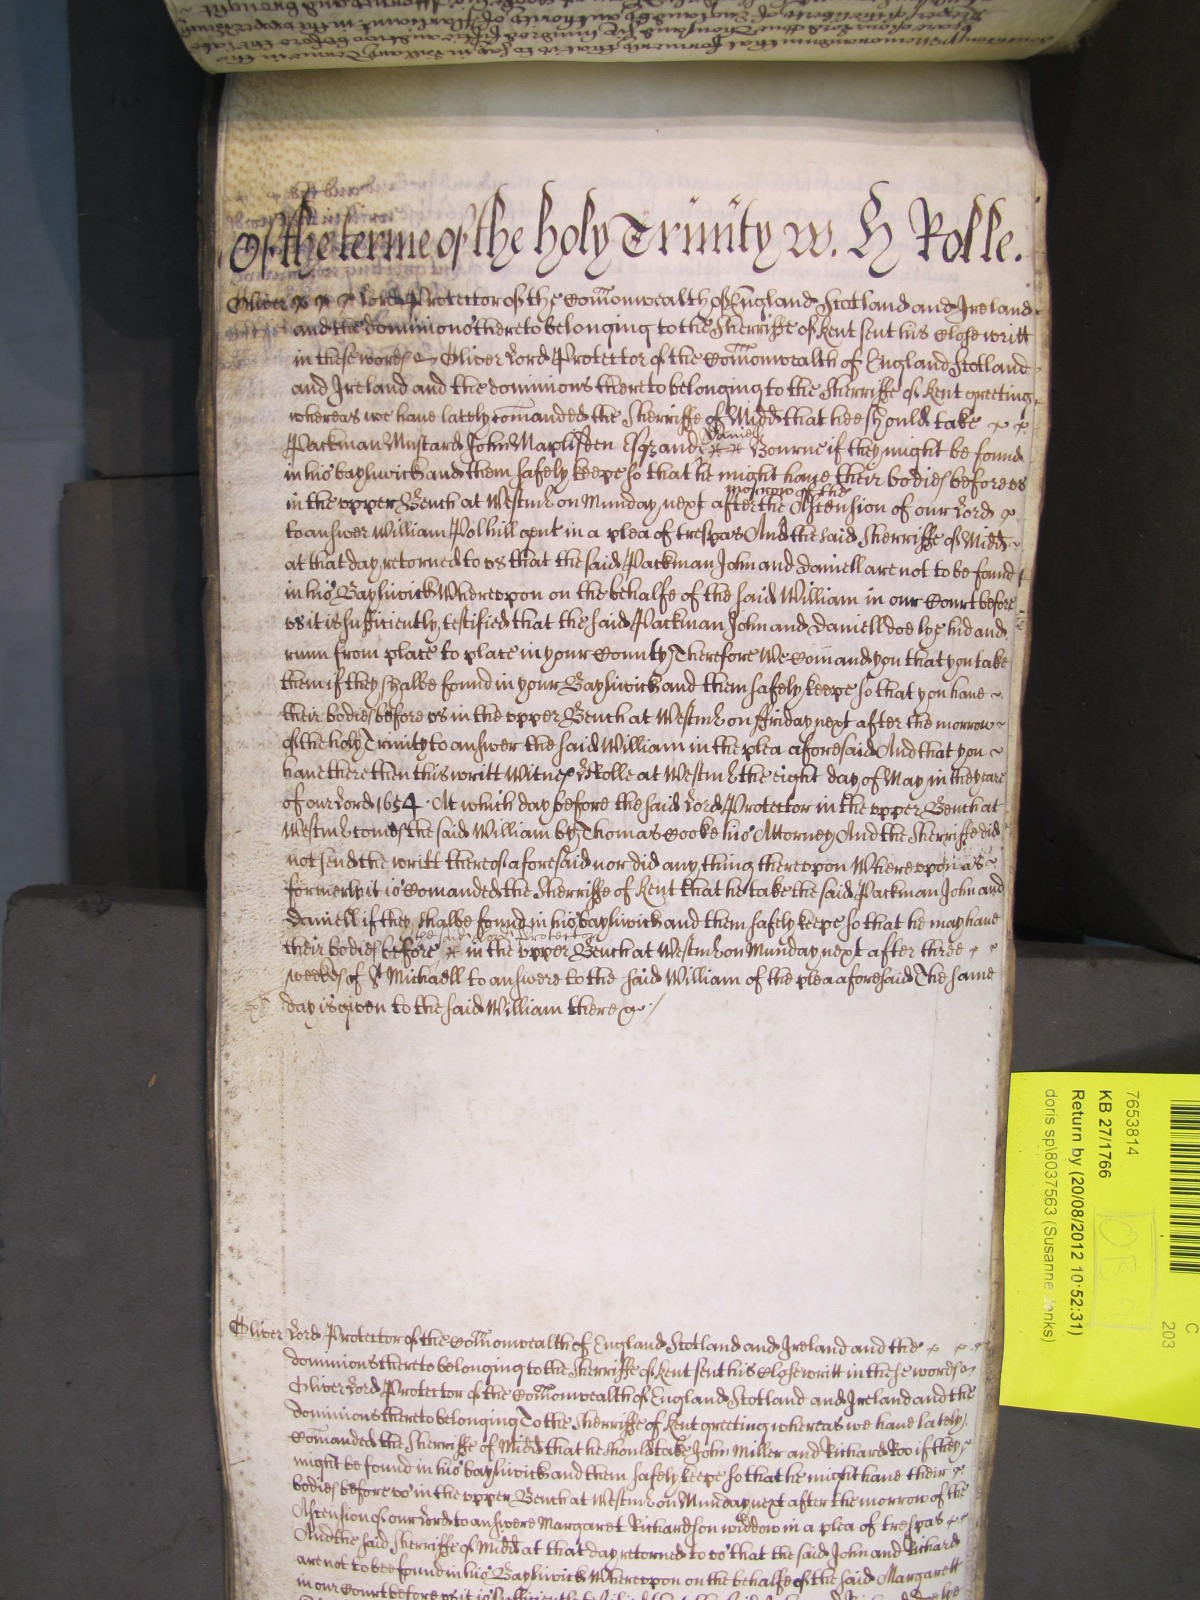 Of the terme of the holy Trinity w. H Rolle.
Oliver x x x Lord Protector of the Com̄onwealth of England Scotland and Ireland
and the dominions thereto belonging to the Sherriffe of Kent sent his Close writt
in these wordes Oliver Lord Protector of the Com̄onwealth of England Scotland
and Ireland and the dominions thereto belonging to the Sherriffe of Kent greeting
whereas we have lately com̄anded the Sherriffe of Midd that hee should take x x
Packman Mustard John Esqr and Daniell Bourne if they might be found
in his bayliwick and them safely keepe so that he might have their bodies before us
in the upper Bench at Westmr on Munday next after the morrow of the Ascension of our Lord
to answer William Polhill gent in a plea of trespas And the said Sherriffe of Midd
at that day returned to us that the said Packman John and Daniell are not to be found
in his Bayliwick Whereupon on the behalfe of the said William in our Court before
us it is sufficiently testified that the said Packman John and Daniell doe lye hid and
runn from place to place in your County Therefore We com̄and you that you take
them if they shalbe found in your Bayliwick and them safely keepe so that you have
their bodies before us in the upper Bench at Westmr on Friday next after the morrow
of the holy Trinity to answer the said William in the plea aforesaid And that you
have there then this writt Witnes H Rolle at Westmr the eight day of May in the yeare
of our Lord 1654. At which day before the said Lord Protector in the upper Bench at
Westmr comes the said William by Thomas Cooke his Attorney And the Sherriffe did
not send the writt thereof aforesaid nor did any thing thereupon Whereupon as
formerly it is Com̄anded the Sherriffe of Kent that he take the said Packman John and
Daniell if they shalbe found in his bayliwick and them safely keepe so that he may have
their bodies before the said Lord Protector in the upper Bench at Westmr on Munday next after three
weekes of St Michaell to answere to the said William of the plea aforesaid The same
day is given to the said William there &c
Oliver Lord Protector of the Com̄onwealth of England Scotland and Ireland and the x x x
dominions thereto belonging to the Sherriffe of Kent sent his Close writt in these wordes
Oliver Lord Protector of the Com̄onwealth of England Scotland and Ireland and the
dominions thereto belonging To the Sherriffe of Kent greeting whereas we have lately
Com̄anded the Sherriffe of Midd that he should take John Miller and Richard Roo if they
might be found in his bayliwick and them safely keepe so that he might have their
bodies before us in the upper Bench at Westmr on Munday next after the morrow of the
Ascension of our Lord to answere Margaret Richardson widdow in a plea of trespas
And the said Sherriffe of Midd at that day returned to us that the said John and Richard
are not to bee found in his Bayliwick Whereupon on the behalfe of the said Margarett
in our Court before us it is sufficiently testified that the said John and Richard doe lye
7653814
KB 27/1766
Return by (20/08/2012 10:52:31)
doris sp\8037563 (Susanne Jenks)
C
203